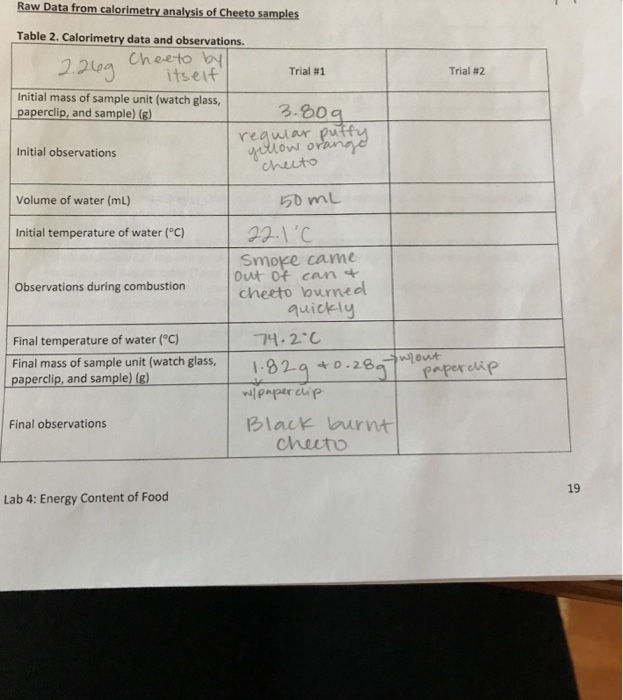 Raw Data from calorimetry analysis of Cheeto samples
Table 2. Calorimetry data and observations.
2.26g Cheeto by
itself
Trial #1
Trial #2
Initial mass of sample unit (watch glass,
paperclip, and sample) (g)
3.80g
Initial observations
regular puffy
yellow orange
cheeto
Volume of water (mL)
50 mL
Initial temperature of water (°C)
22.1°C
Observations during combustion
Smoke came
out of can +
cheeto burned
quickly
Final temperature of water (°C)
74.2°C
Final mass of sample unit (watch glass,
paperclip, and sample) (g)
1.82g + 0.28g → w/out
paperclip
w/paperclip
Final observations
Black burnt
cheeto
Lab 4: Energy Content of Food
19